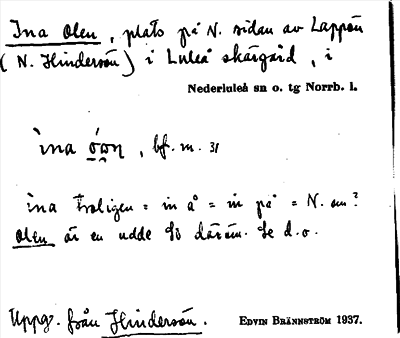 Ina Olen, plats på N. sidan av Lappön
(N. Hindersön) i Luleå skärgård, i
Nederluleå sn o. tg Norrb. l.
ìna , bf. m. 31
ìna troligen = in å = in på = N. om?
Olen är en udde SÖ därom. Se d.o.
Uppg. från Hindersön. EDVIN BRÄNNSTRÖM 1937.